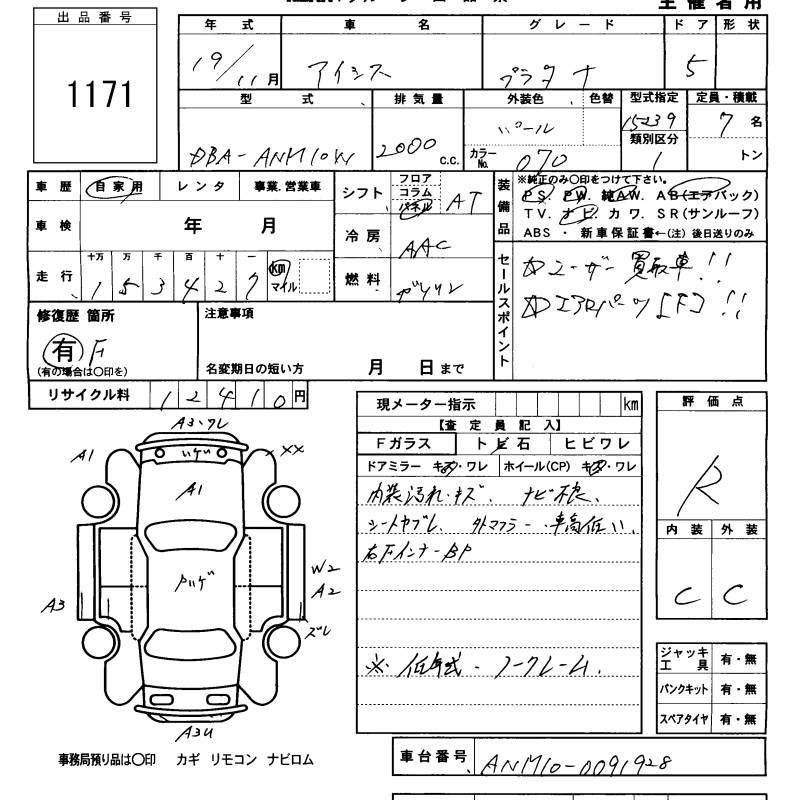 主催者用
出品番号
1171
年式 車名 グレード ドア 形状
19/11月 アイシス プラタナ 5
型式 排気量 外装色 色替 型式指定 定員・積載
DBA-ANM10W 2000 c.c. パール 15239 7名
カラーNo. 070 類別区分 1 トン
車歴 自家用 レンタ 事業.営業車
シフト フロア コラム パネル AT
装備品 ※純正のみ〇印をつけて下さい。
PS. PW. 純AW. AB(エアバック)
TV. ナビ. カワ. SR(サンルーフ)
ABS ・ 新車保証書←(注) 後日送りのみ
車検 年 月
冷房 AAC
走行 十万 万 千 百 十 一
153427 km マイル
燃料 ガソリン
セールスポイント
☆ユーザー買取車!!
☆エアロパーツ[F]!!
修復歴 箇所
有 F
(有の場合は〇印を)
注意事項
名変期日の短い方 月 日まで
リサイクル料 12410円
現メーター指示 km
【査定員記入】
Fガラス トビ石 ヒビワレ
ドアミラー キズ・ワレ ホイール(CP) キズ・ワレ
内装汚れ・キズ. ナビ不良.
シートヤブレ. 外マフラー. 車高低い.
右FインナーBP
※ 低年式・ノークレーム.
評価点
R
内装 外装
C C
A3・ワレ
ハゲ
A1
XX
A1
ハゲ
A3
W2
A2
ズレ
A3U
ジャッキ工具 有・無
パンクキット 有・無
スペアタイヤ 有・無
事務局預り品は〇印 カギ リモコン ナビロム
車台番号 ANM10-0091928